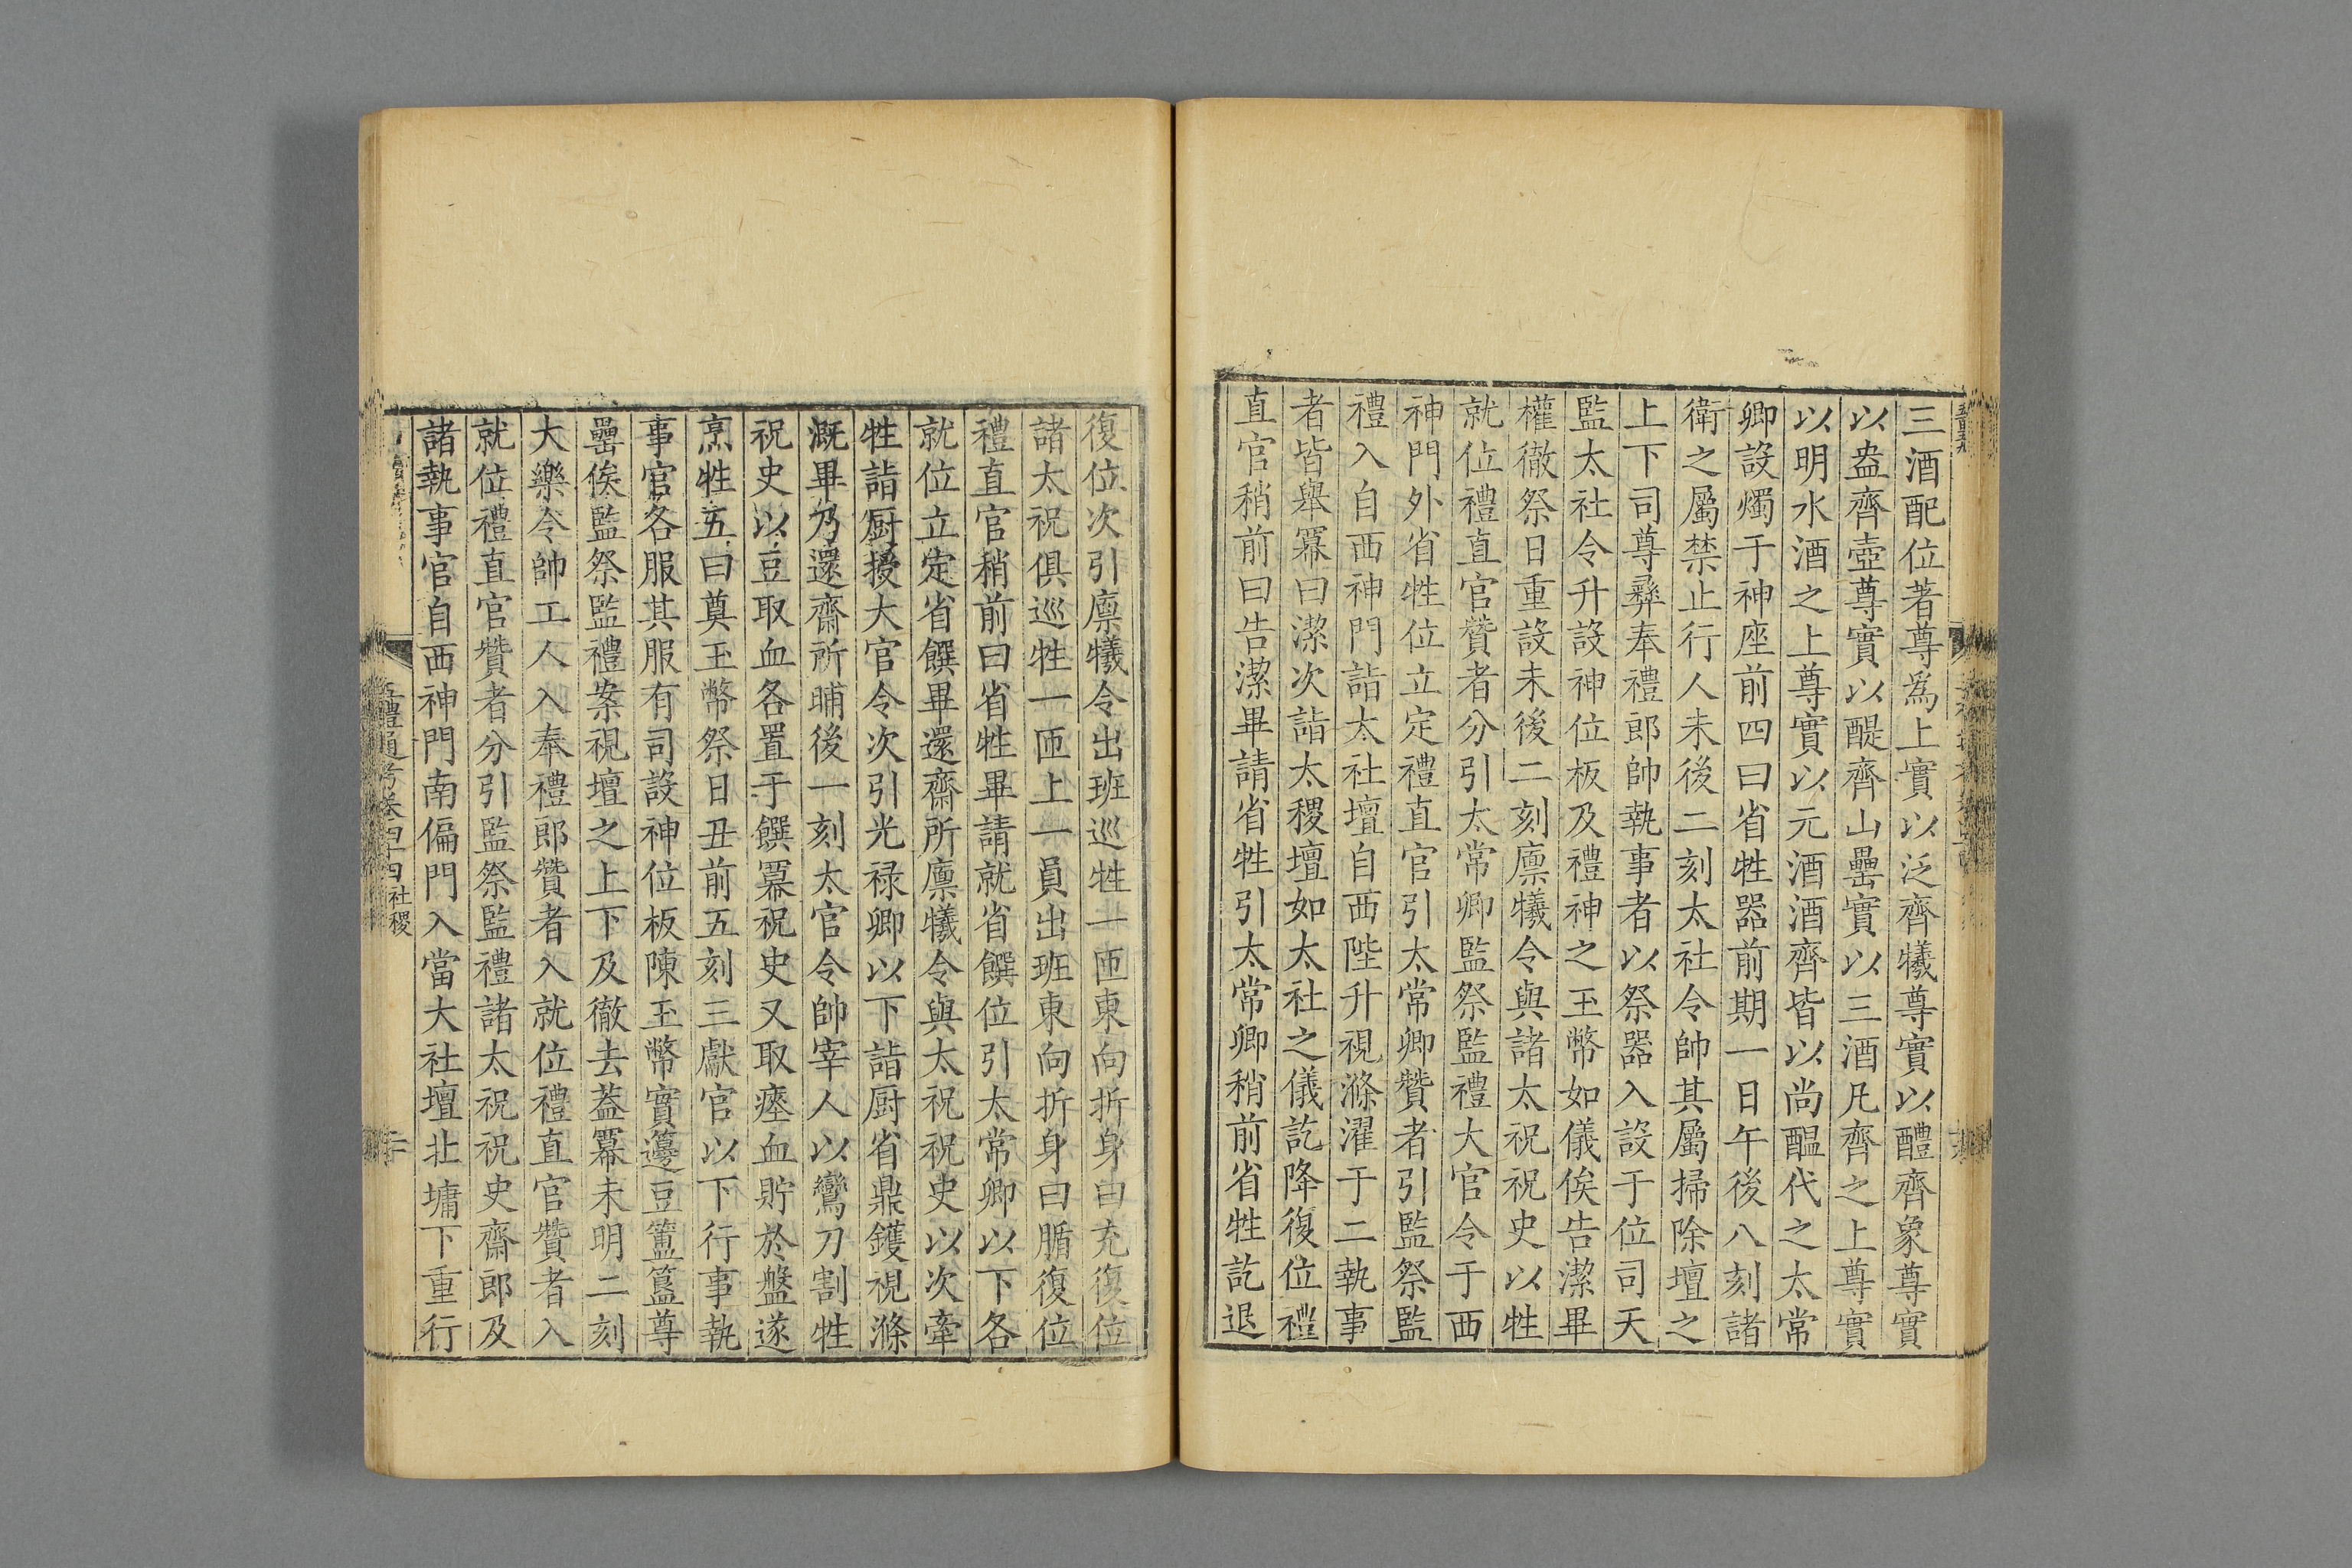 三酒配位著尊爲上實以泛齊犧尊實以醴齊象尊實
以盎齊壺尊實以醍齊山罍實以三酒凡齊之上尊實
以明水酒之上尊實以元酒酒齊皆以尚醞代之太常
卿設燭于神座前四曰省牲器前期一日午後八刻諸
衛之屬禁止行人未後二刻太社令帥其屬掃除壇之
上下司尊彝奉禮郎帥執事者以祭器入設于位司天
監太社令升設神位板及禮神之玉幣如儀俟告潔畢
權徹祭日重設未後二刻廪犧令與諸太祝祝史以牲
就位禮直官贊者分引太常卿監祭監禮大官令于西
神門外省牲位立定禮直官引太常卿贊者引監祭監
禮入自西神門詣太社壇自西陛升視滌濯于二執事
者皆舉羃曰潔次詣太稷壇如太社之儀訖降復位禮
直官稍前曰告潔畢請省牲引太常卿稍前省牲訖退
復位次引廪犧令出班巡牲一匝東向折身曰充復位
諸太祝俱巡牲一匝上一員出班東向折身曰腯復位
禮直官稍前曰省牲畢請就省饌位引太常卿以下各
就位立定省饌畢還齋所廪犧令與太祝祝史以次牽
牲詣厨授大官令次引光禄卿以下詣厨省鼎鑊視滌
溉畢乃還齋所晡後一刻太官令帥宰人以鸞刀割牲
祝史以豆取血各置于饌羃祝史又取瘞血貯於盤遂
烹牲五曰奠玉幣祭日丑前五刻三獻官以下行事執
事官各服其服有司設神位板陳玉幣實籩豆簠簋尊
罍俟監祭監禮案視壇之上下及徹去蓋羃未明二刻
大樂令帥工人入奉禮郎贊者入就位禮直官贊者入
就位禮直官贊者分引監祭監禮諸太祝祝史齋郎及
諸執事官自西神門南偏門入當大社壇北墉下重行
五禮通考卷四十四社稷